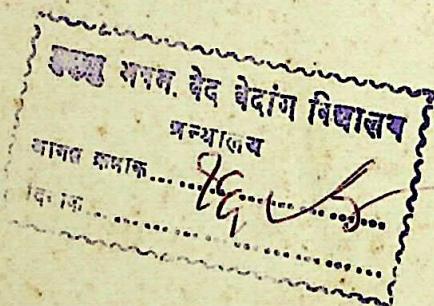 मुमुक्षु भवन, वेद वेदांग विद्यालय
ग्रन्थालय
आगत क्रमांक...........................
दिनांक....................................